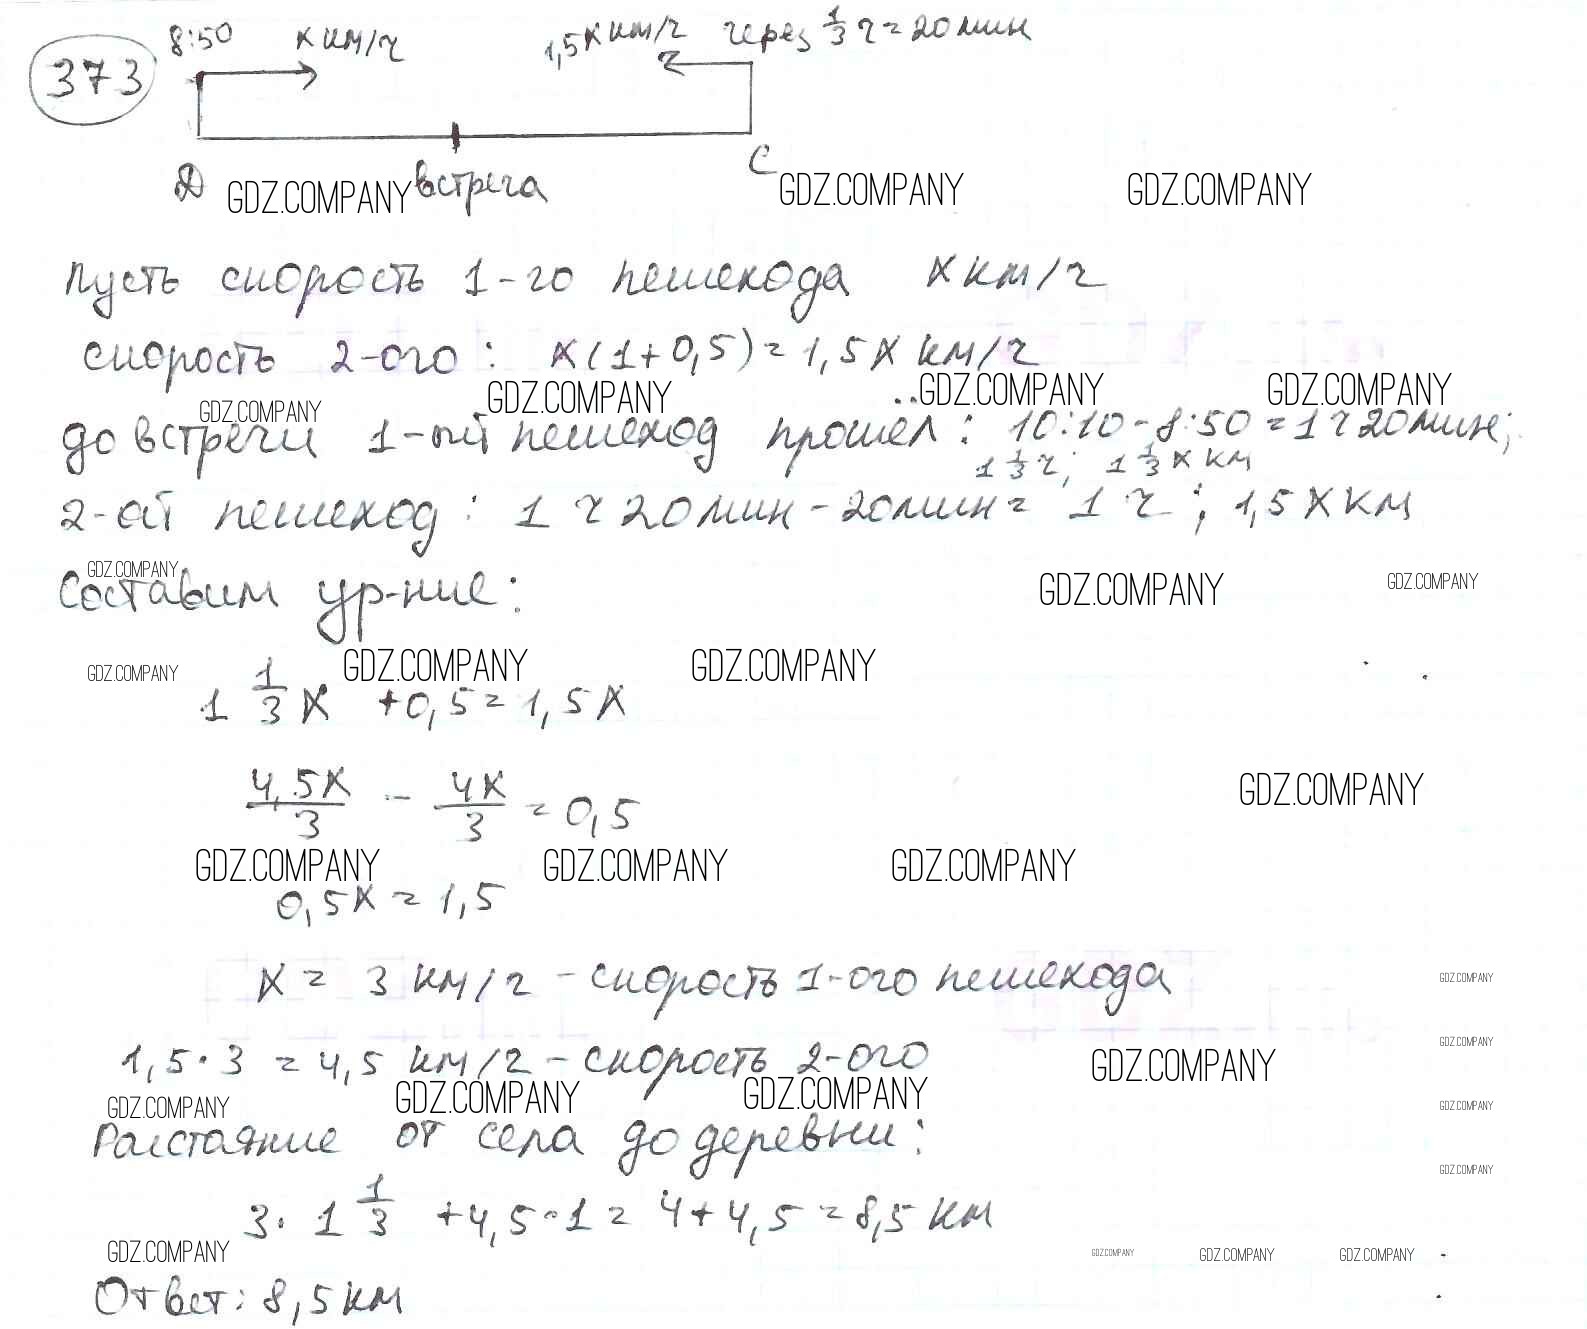 373
8:50 х км/ч 1,5х км/ч через 1/3 ч = 20 мин
Д встреча С
GDZ.COMPANY GDZ.COMPANY GDZ.COMPANY
Пусть скорость 1-го пешехода х км/ч
скорость 2-ого: х(1+0,5)=1,5х км/ч
GDZ.COMPANY GDZ.COMPANY GDZ.COMPANY GDZ.COMPANY
до встречи 1-ый пешеход прошёл: 10:10-8:50=1ч 20мин;
1 1/3 ч; 1 1/3 х км
2-ой пешеход: 1 ч 20 мин - 20 мин = 1 ч; 1,5х км
GDZ.COMPANY GDZ.COMPANY GDZ.COMPANY
Составим ур-ние:
GDZ.COMPANY GDZ.COMPANY GDZ.COMPANY
1 1/3 х +0,5=1,5х
4,5х/3 - 4х/3 = 0,5
GDZ.COMPANY
GDZ.COMPANY GDZ.COMPANY GDZ.COMPANY
0,5х = 1,5
х = 3 км/ч - скорость 1-ого пешехода
GDZ.COMPANY
GDZ.COMPANY
1,5·3 = 4,5 км/ч - скорость 2-ого
GDZ.COMPANY
GDZ.COMPANY GDZ.COMPANY GDZ.COMPANY GDZ.COMPANY
Расстояние от села до деревни:
GDZ.COMPANY
3·1 1/3 +4,5·1= 4+4,5=8,5 км
GDZ.COMPANY GDZ.COMPANY GDZ.COMPANY GDZ.COMPANY
Ответ: 8,5 км